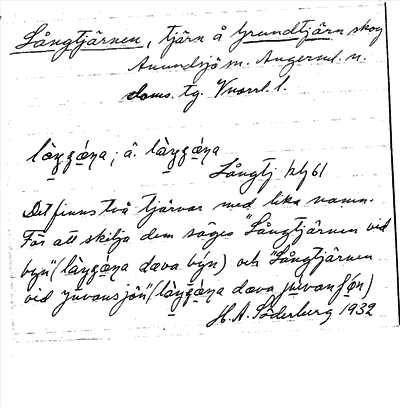 Långtjärnen, tjärn å Grundtjärn skog
Anundsjö sn. Ångerml. n.
doms. tg. Vnorrl. l.
Långtj. blj 61
Det finns två tjärnar med lika namn.
För att skilja dem säges "Långtjärnen vid
byn" (làŋgɑ́ɳa dæva byn) och "Långtjärnen
vid Juvansjön" (làŋgɑ́ɳa dæva
H. A. Söderberg 1932